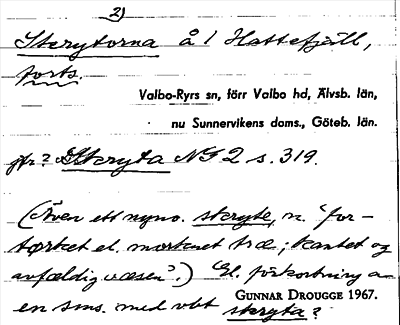 2)
Skrytorna å 1 Hattefjäll,
forts.
Valbo-Ryrs sn, förr Valbo hd, Älvsb. län,
nu Sunnervikens doms., Göteb. län.
jfr? Skryta NG 2 s. 319.
(Även ett nyno. skryte, n. "for-
tørket el. morknet træ; kantet og
avfældig væsen".) El. förkortning av
en sms. med vbt skryta?
GUNNAR DROUGGE 1967.